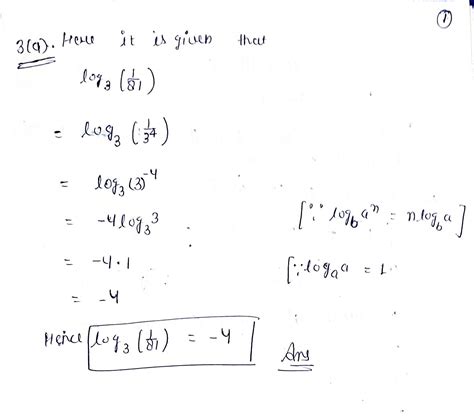 ①
3(a). Here it is given that
log₃ (1/81)
= log₃ (1/3⁴)
= log₃ (3)⁻⁴
= -4 log₃ 3 [∵ log_b aⁿ = n.log_b a]
= -4·1 [∵ logₐ a = 1.
= -4
Hence log₃ (1/81) = -4 Ans